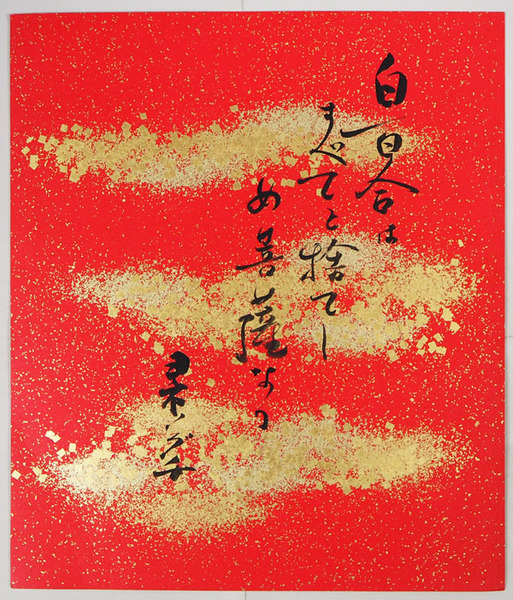 白百合は
すべてを捨てし
め菩薩なり